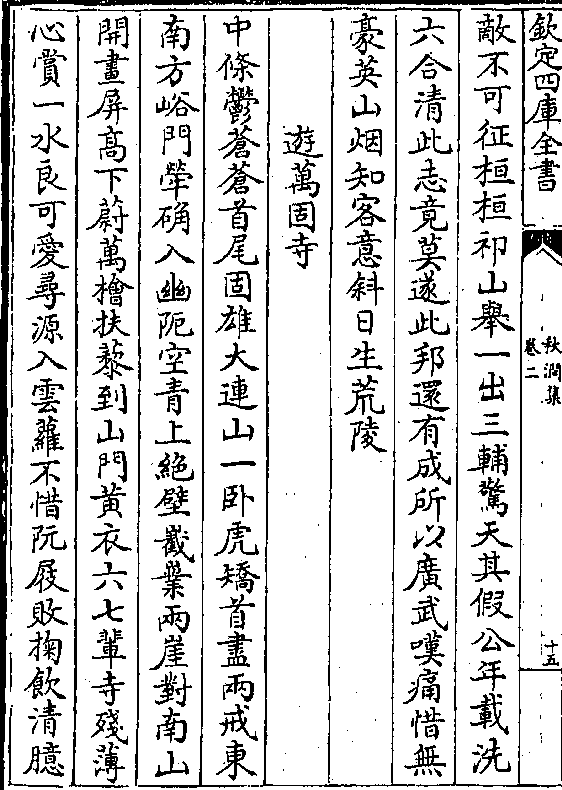 欽定四庫全書
秋澗集
卷二
十五
敵不可征桓桓祁山舉一出三輔驚天其假公年載洗
六合清此志竟莫遂此邦還有成所以廣武嘆痛惜無
豪英山烟知客意斜日生荒陵
遊萬固寺
中條鬱蒼蒼首尾固雄大連山一卧虎矯首盡兩戒東
南方峪門犖确入幽阨空青上絶壁巀嶪兩崖對南山
開畫屏高下蔚萬檜扶藜到山門黃衣六七輩寺殘薄
心賞一水良可愛尋源入雲蘿不惜阮屐敗掬飲清臆